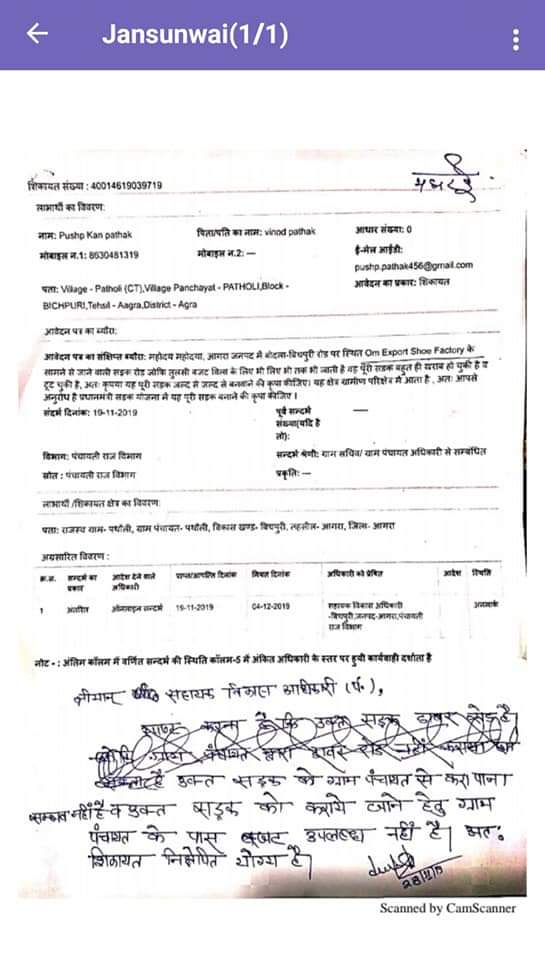 Jansunwai(1/1)
शिकायत संख्या : 40014619039719
लाभार्थी का विवरण:
नाम: Pushp Kan pathak
पिता/पति का नाम: vinod pathak
आधार संख्या: 0
मोबाइल न.1: 8630481319
मोबाइल न.2: ---
ई-मेल आईडी:
pushp.pathak456@gmail.com
पता: Village - Patholi (CT),Village Panchayat - PATHOLI,Block -
BICHPURI,Tehsil - Aagra,District - Agra
आवेदन का प्रकार: शिकायत
आवेदन पत्र का ब्यौरा:
आवेदन पत्र का संक्षिप्त ब्यौरा: महोदय महोदया, आगरा जनपद में बोदला-बिचपुरी रोड पर स्थित Om Export Shoe Factory के
सामने से जाने वाली सड़क रोड जोकि तुलसी बजट विला के लिए भी लिए भी तक भी जाती है वह पूरी सड़क बहुत ही खराब हो चुकी है व
टूट चुकी है, अतः कृपया यह पूरी सड़क जल्द से जल्द से बनवाने की कृपा कीजिए। यह क्षेत्र ग्रामीण परिक्षेत्र में आता है , अतः आपसे
अनुरोध है प्रधानमंत्री सड़क योजना में यह पूरी सड़क बनाने की कृपा कीजिए ।
संदर्भ दिनांक: 19-11-2019
पूर्व सन्दर्भ
संख्या(यदि है
तो):
विभाग: पंचायती राज विभाग
सन्दर्भ श्रेणी: ग्राम सचिव/ ग्राम पंचायत अधिकारी से सम्बंधित
स्रोत : पंचायती राज विभाग
प्रकृति: ---
लाभार्थी /शिकायत क्षेत्र का विवरण:
पता: राजस्व ग्राम- पथौली, ग्राम पंचायत- पथौली, विकास खण्ड- बिचपुरी, तहसील- आगरा, जिला- आगरा
अग्रसारित विवरण :
क्र.स. सन्दर्भ का प्रकार आदेश देने वाले अधिकारी प्राप्त/आपत्ति दिनांक नियत दिनांक अधिकारी को प्रेषित आदेश स्थिति
1 अंतरित ऑनलाइन सन्दर्भ 19-11-2019 04-12-2019 सहायक विकास अधिकारी -बिचपुरी,जनपद-आगरा,पंचायती राज विभाग अनमार्क
नोट - : अंतिम कॉलम में वर्णित सन्दर्भ की स्थिति कॉलम-5 में अंकित अधिकारी के स्तर पर हुयी कार्यवाही दर्शाता है
श्रीमान सहायक विकास अधिकारी (पं.),
उक्त सड़क को ग्राम पंचायत से करा पाना
सम्भव नहीं है व उक्त सड़क को कराये जाने हेतु ग्राम
पंचायत के पास बजट उपलब्ध नहीं है। अतः
शिकायत निक्षेपित योग्य है।
Scanned by CamScanner